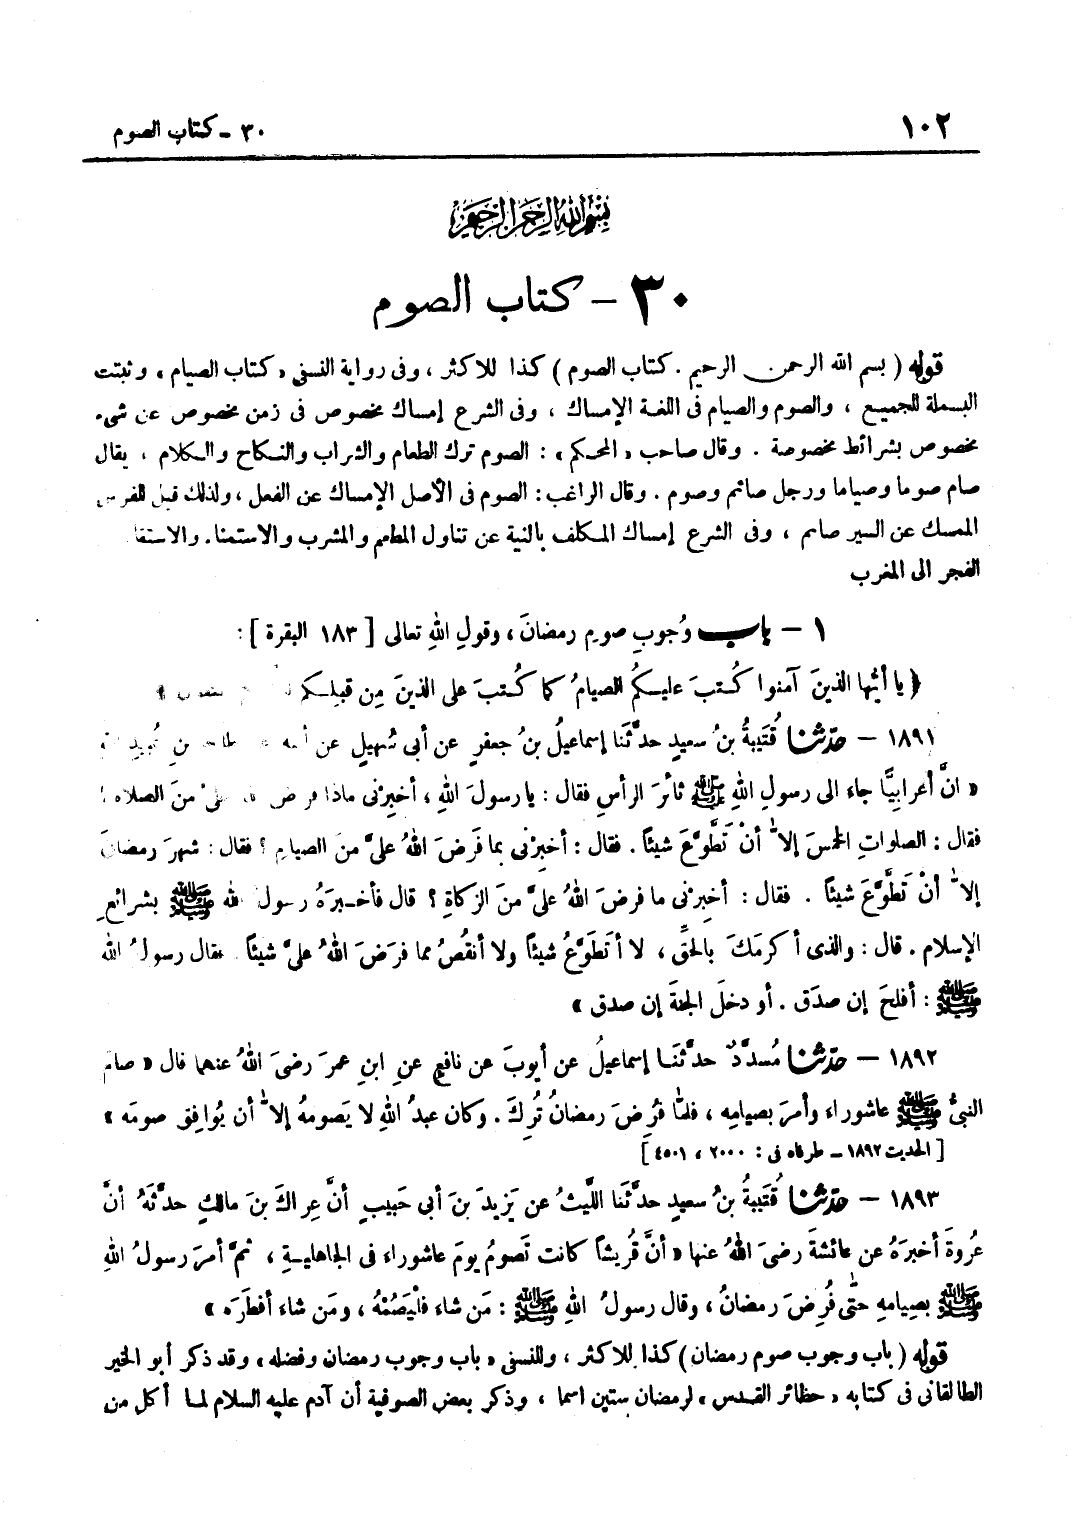 ١٠٢
٣٠ - كتاب الصوم
بسم الله الرحمن الرحيم
٣٠ - كتاب الصوم
قوله ( بسم الله الرحمن الرحيم . كتاب الصوم ) كذا للأكثر ، وفى رواية النسفى « كتاب الصيام » وثبتت
البسملة للجميع ، والصوم والصيام فى اللغة الإمساك ، وفى الشرع إمساك مخصوص فى زمن مخصوص عن شىء
مخصوص بشرائط مخصوصة . وقال صاحب « المحكم » : الصوم ترك الطعام والشراب والنكاح والكلام ، يقال
صام صوما وصياما ورجل صائم وصوم . وقال الراغب : الصوم فى الأصل الإمساك عن الفعل ، ولذلك قيل للفرس
الممسك عن السير صائم ، وفى الشرع إمساك المكلف بالنية عن تناول المطعم والمشرب والاستمنا. والاستقا
الفجر الى المغرب
١ - باب وُجوبِ صومِ رمضانَ ، وقولِ اللهِ تعالى [ ١٨٣ البقرة ] :
﴿ يا أيُّها الذينَ آمنوا كُتبَ عليكمُ الصيامُ كما كُتبَ على الذينَ مِن قبلِكم
١٨٩١ - حدّثنا قُتَيبةُ بنُ سعيدٍ حدَّثَنا إسماعيلُ بنُ جعفرٍ عن أبى سُهيلٍ عن
« انَّ أعرابيًّا جاء الى رسولِ اللهِ ﷺ ثائرَ الرأسِ فقال : يا رسولَ اللهِ ، أخبِرْنى ماذا منَ الصلاة
فقال : الصلواتِ الخمسَ إلاّ أنْ تَطَّوَّعَ شيئاً . فقال : أخبِرْنى بما فرَضَ اللهُ علىَّ منَ الصيامِ ؟ فقال : شهرَ رمضانَ
إلاّ أنْ تَطَّوَّعَ شيئاً . فقال : أخبِرنى ما فرضَ اللهُ علىَّ منَ الزكاةِ ؟ قال فأخبرَهُ رسولُ الله ﷺ بشرائعِ
الإسلام . قال : والذى أكرمَكَ بالحقِّ ، لا أتَطَوَّعُ شيئاً ولا أنقُصُ مما فرَضَ اللهُ علىَّ شيئاً . فقال رسولُ الله
ﷺ : أفلحَ إن صدَق . أو دخلَ الجنةَ إن صدق »
١٨٩٢ - حدّثنا مُسدَّدٌ حدَّثَنا إسماعيلُ عن أيوبَ عن نافعٍ عنِ ابنِ عمرَ رضىَ اللهُ عنهما قال « صامَ
النبىُّ ﷺ عاشوراء وأمرَ بصيامِه ، فلمّا فُرِضَ رمضانُ تُرِكَ . وكان عبدُ اللهِ لا يَصومهُ إلاّ أن يُوافِقَ صومَه »
[ الحديث ١٨٩٢ - طرفاه فى : ٢٠٠٠ ، ٤٥٠١ ]
١٨٩٣ - حدّثنا قُتَيبةُ بنُ سعيدٍ حدَّثَنا اللَّيثُ عن يَزيدَ بنَ أبى حَبيبٍ أنَّ عِراكَ بنَ مالكٍ حدَّثَهُ أنَّ
عُروةَ أخبرَهُ عن عائشةَ رضىَ اللهُ عنها « أنَّ قُريشاً كانت تَصومُ يومَ عاشوراء فى الجاهليةِ ، ثمَّ أمرَ رسولُ اللهِ
ﷺ بصِيامهِ حتّى فُرِضَ رمضانُ ، وقال رسولُ اللهِ ﷺ : مَن شاء فلْيَصُمْهُ ، ومَن شاء أفطَرَه »
قوله ( باب وجوب صوم رمضان ) كذا للأكثر ، وللنسفى « باب وجوب رمضان وفضله ، وقد ذكر أبو الخير
الطالقانى فى كتابه « حظائر القدس » لرمضان ستين اسما ، وذكر بعض الصوفية أن آدم عليه السلام لما أكل من